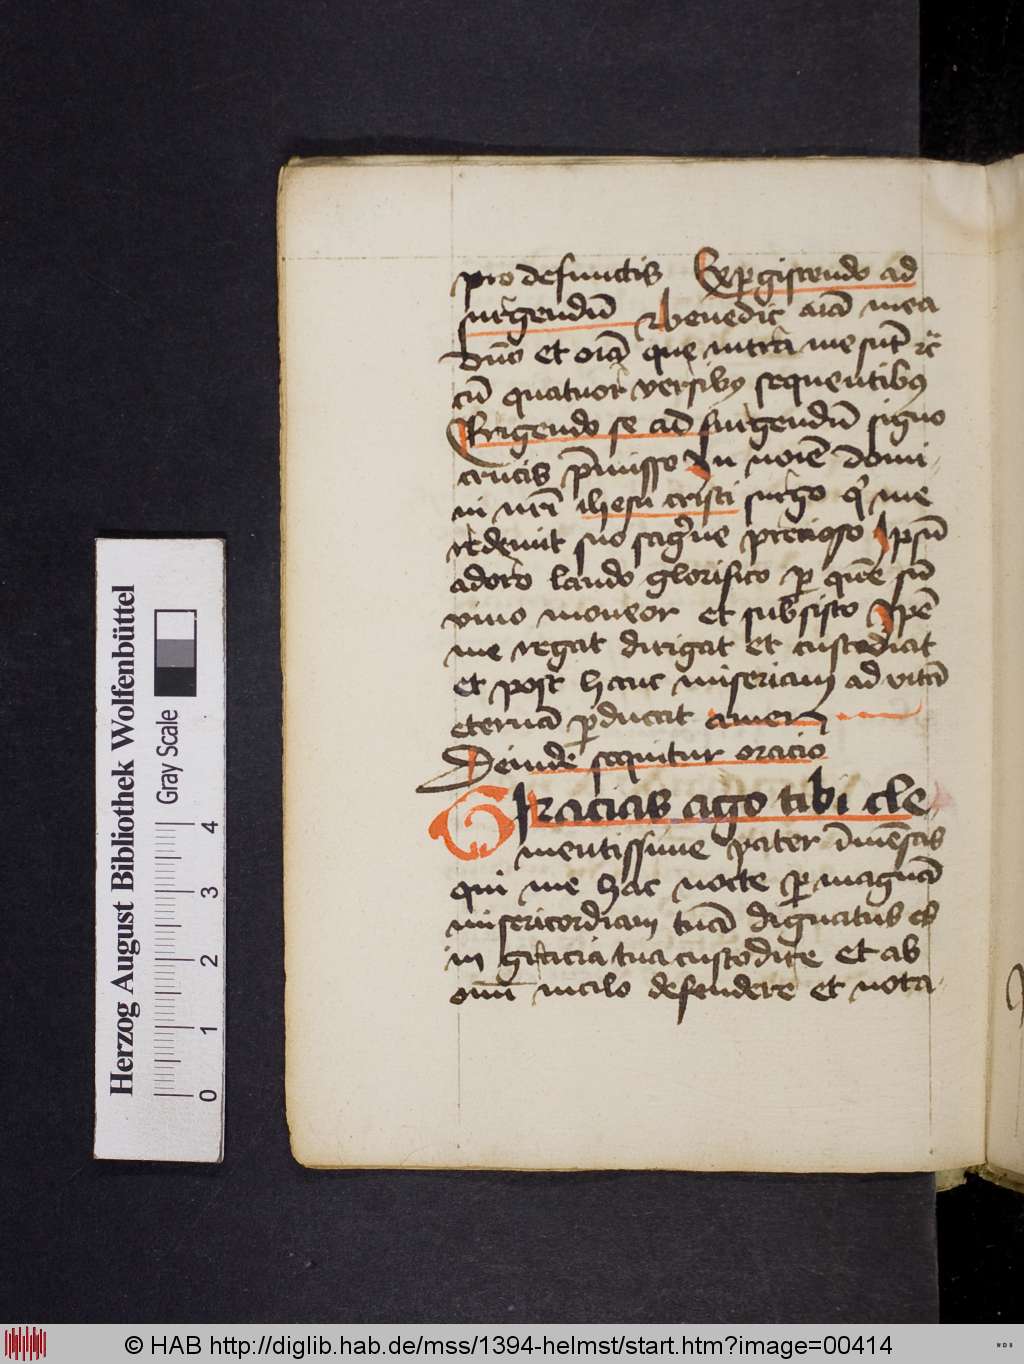 pro defunctis Expergiscendo ad
surgendū Benedic aīa mea
dn̄o et oīa que intra me sūt ⁊c̄
cū quatuor versibꝰ sequentibꝰ
Erigendo se ad surgendū signo
crucis p̄misso In noīe domi-
ni nr̄i ihesu cristi surgo q̇ me
redemit suo sāgͥne precioso Ipsū
adoro laudo glorifico ꝑ quē sū
viuo moueor et subsisto Ipē
me regat dirigat et custodiat
et post hanc miseriam ad vitā
eternā ꝑducat amen
Deinde sequitur oracio
Gracias ago tibi cle-
mentissime pater
qui me hac nocte ꝑ magnā
misericordiam tuā dignatus es
in gracia tua custodire et ab
omī malo defendere et nota-
Herzog August Bibliothek Wolfenbüttel
Gray Scale
0 1 2 3 4
© HAB http://diglib.hab.de/mss/1394-helmst/start.htm?image=00414